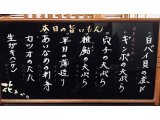 本日の旨いもん
白バイ貝の煮付
ギンポの天ぷら
穴子の天ぷら
稚鮎の天ぷら
平目の薄造り
あいなめの刺身
カツオのたたき
生ガキ
花